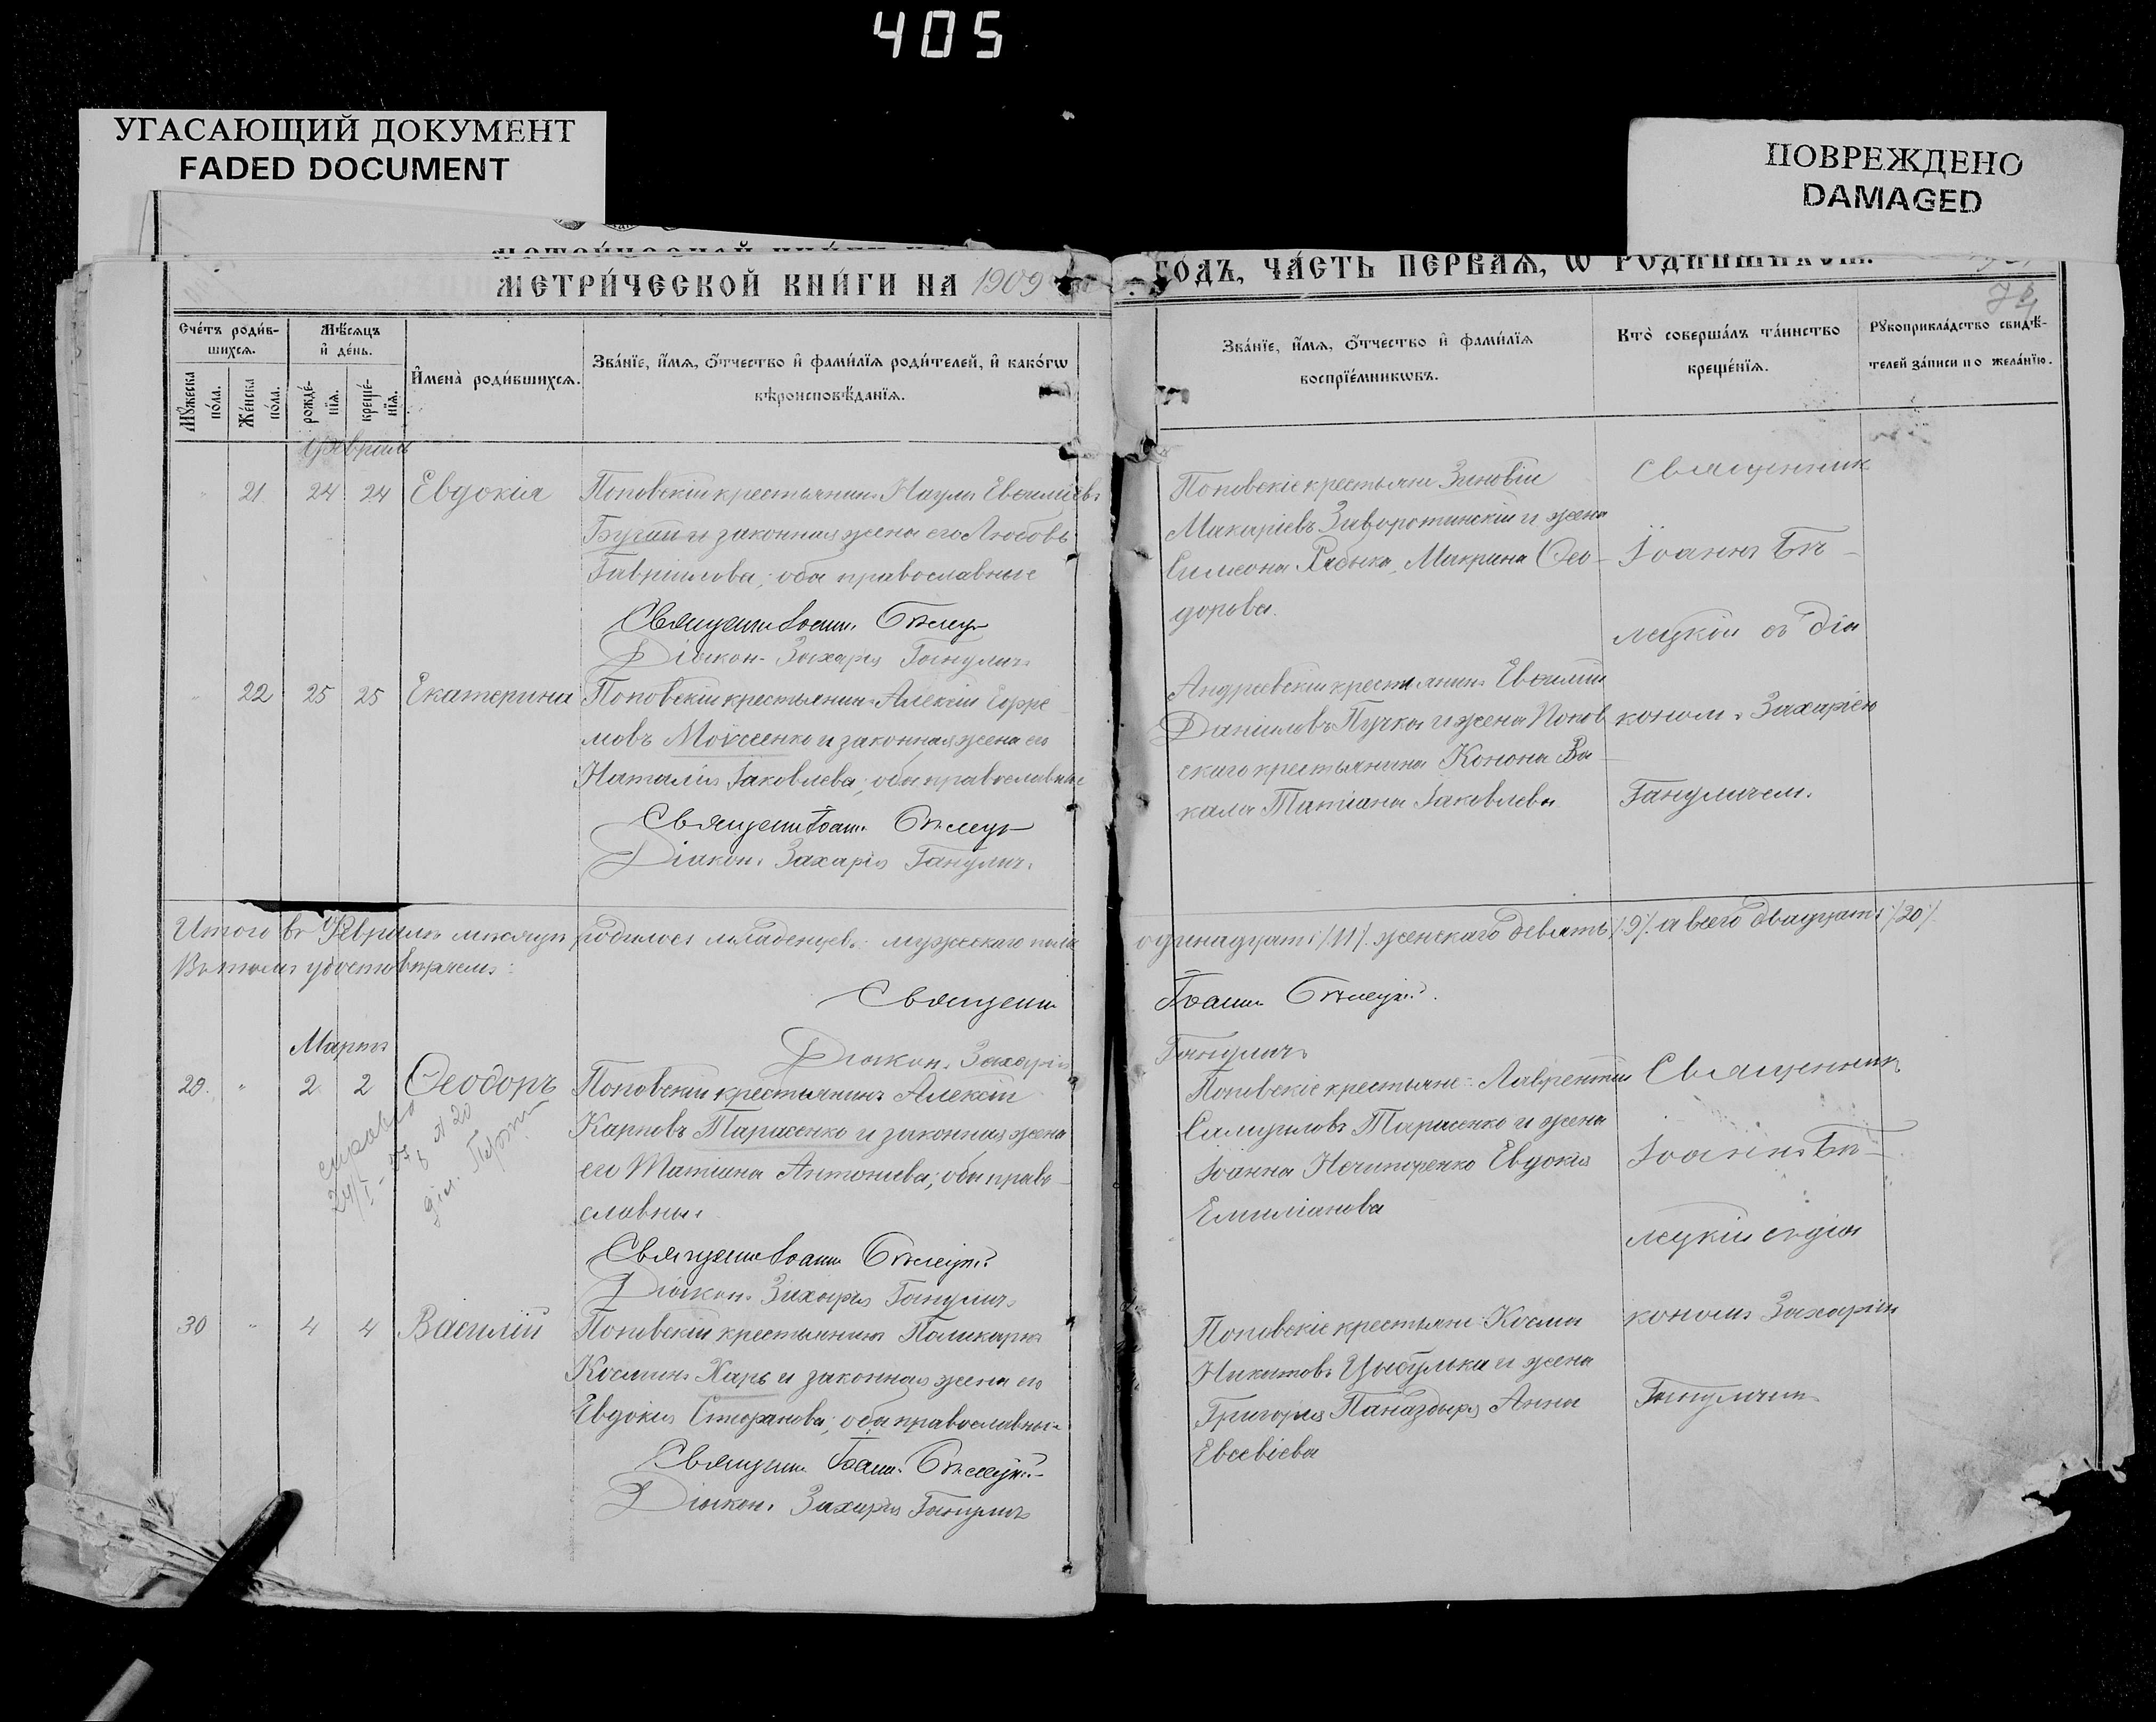 405
УГАСАЮЩИЙ ДОКУМЕНТ
FADED DOCUMENT
ПОВРЕЖДЕНО
DAMAGED
МЕТРИ́ЧЕСКОЙ КНИ́ГИ НА 1909
ГО́ДЪ, ЧА́СТЬ ПЕ́РВАѦ, Ѡ РОДИ́ВШИХСѦ.
Сче́тъ роди́в-
шихсѧ.
Мѣ́сѧцъ
и҆ де́нь.
И҆мена̀ роди́вшихсѧ.
Зва́нїе, и҆́мѧ, ѻ҆́тчество и҆ фами́лїѧ роди́телей, и҆ како́гѡ
вѣроисповѣ́данїѧ.
Мꙋ́жеска
по́ла.
Же́нска
по́ла.
рожде́-
нїѧ.
креще́-
нїѧ.
Зва́нїе, и҆́мѧ, ѻ҆́тчество и҆ фами́лїѧ
воспрїе́мникѡвъ.
Кто̀ соверша́лъ та́инство
креще́нїѧ.
Рꙋкоприкла́дство свидѣ́-
телей за́писи по жела́нїю.
Февраль
21 24 24 Евдокія
Поповскій крестьянинъ Наумъ Евѳиміевъ
Бугай и законная жена его Любовь
Гавріилова; оба православные
Священникъ Іоаннъ Бѣлецкій
Діаконъ Захарія Ганулич
Поповскіе крестьяне Зиновій
Макаріевъ Заворотинскій и жена
Симеона Рябыка, Макрина Ѳео-
дорова.
Священник
Іоаннъ Бѣ-
лецкій съ діа
22 25 25 Екатерина
Поповскій крестьянинъ Алексій Ефре
мовъ Моисеенко и законная жена его
Наталія Іаковлева; оба православные
Священникъ Іоаннъ Бѣлецкій
Діаконъ Захарія Ганулич
Андреевскій крестьянинъ Евѳимій
Даниловъ Пучка и жена Попов
скаго крестьянина Конона Ва-
кала Татіана Іаковлева
кономъ Захаріею
Гануличем.
Итого въ Февралѣ мѣсяцѣ родилось младенцевъ: мужескаго пола
одинадцать /11/ женскаго девять /9/ а всего двадцать /20/.
Въ томъ удостовѣряемъ:
Священникъ Іоаннъ Бѣлецкій.
Діаконъ Захарія Ганулич
Мартъ
29 2 2 Ѳеодоръ
Поповскій крестьянинъ Алексій
Карповъ Тарасенко и законная жена
его Татіана Антоніева; оба право-
славные
Священникъ Іоаннъ Бѣлецкій
Діаконъ Захарія Ганулич
Поповскіе крестьяне: Лаврентій
Самуиловъ Тарасенко и жена
Іоанна Нечипоренко Евдокія
Емиліанова
Священникъ
Іоаннъ Бѣ-
лецкій съ діа
30 4 4 Василій
Поповскій крестьянинъ Поликарпъ
Косминъ Харь и законная жена его
Евдокія Стефанова; оба православные
Священникъ Іоаннъ Бѣлецкій
Діаконъ Захарія Ганулич
Поповскіе крестьяне Косма
Никитовъ Цыбулька и жена
Григорія Паназдыря Анна
Евсевіева
кономъ Захаріею
Гануличем